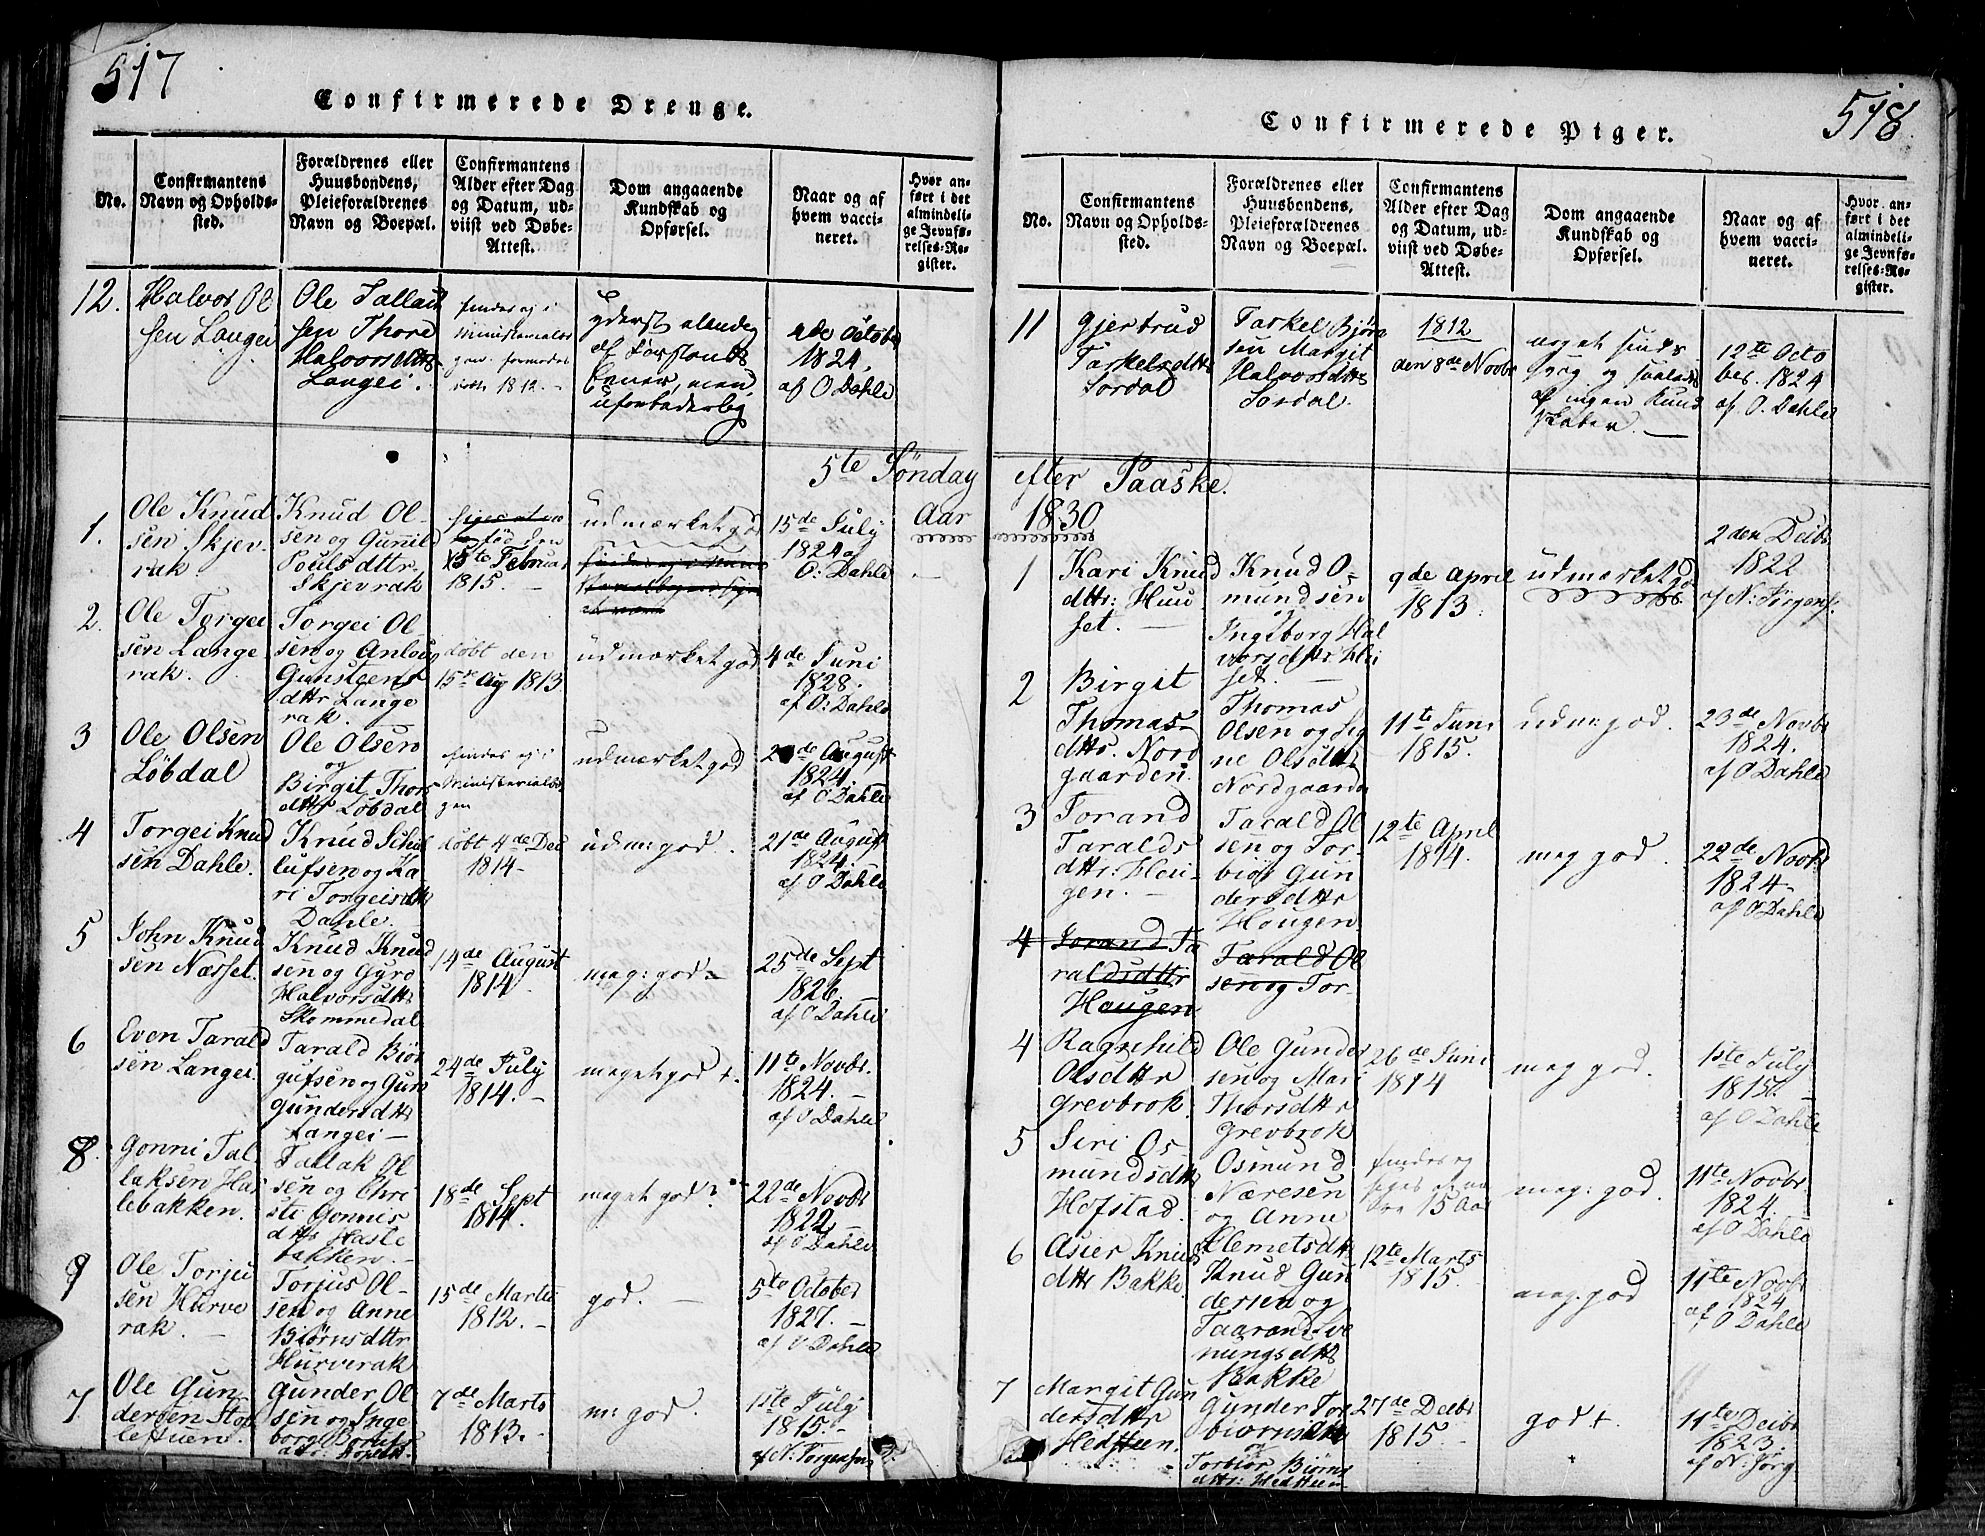 517
Confirmerede Drenge.
No.
Confirmantens
Navn og Opholds-
sted.
Forældrenes eller
Huusbondens,
Pleieforældrenes
Navn og Boepæl.
Confirmantens
Alder efter Dag
og Datum, ud-
viist ved Døbe-
Attest.
Dom angaaende
Kundskab og
Opførsel.
Naar og af
hvem vacci-
neret.
Hvor an-
ført i det
almindeli-
ge Jevnfø-
relses-Re-
gister.
12.
Halvor Ol
sen Langei
Ole Tallach
sen Thore
Halvorsdttr
Langei.
findes ej i
1812. -
yderst elendig
af Forstands
Evner, men
uforbederlig
October
1824,
af O Dahle
5te Søndag
Aar
1.
Ole Knud
sen Skjev-
rak.
Knud Ol-
sen og Gunild
Poulsdttr.
Skjevrak
født den
5te Februar
1815. -
udmærket god
15de July
1824 af
O: Dahle
2.
Ole Torgei
sen Lange
rak.
Torgei Ol
sen og Anloug
Gunsteens
dttr Lange
rak.
døbt den
15de Aug 1813
udmærket god
4de Juni
1828.
af O: Dahle
3
Ole Olsen
Løbdal
Ole Olsen
og
Birgit Thors
dttr Løbdal
findes ej i
Ministerialbo
gen
udmærket god
August
1824.
af O Dahle
4
Torgei Knud
sen Dahle.
Knud
lufsen og Ka
ri Torgeisdttr
Dahle.
døbt 4de Dec
1814 -
udm: god.
21de August
1824.
af O Dahle
5
John Knud
sen Næsset.
Knud Knud
sen og Gyro
Halvorsdttr
Skommedal
14de August
1814.
meg: god
25de Sept
1826.
af O Dahle
6
Even Tarald
sen Langei.
Tarald Biør
gufsen og Gun
Gundersdttr
Langei -
24de July
1814. -
meget god +.
11te Novbr.
1824. -
af O Dahle
8.
Gonni Tal
laksen Has
lebakken.
Tallak Ol
sen og Chri
sti Gonnis
dttr Hasle
bakken. -
18de Sept
1814.
meget god
22de Novbr
1822
af O Dahle
9
Ole Torju
sen Hurve
rak. -
Torjus Ol-
sen og Anne
Biørnsdttr
Hurverak
15de Marts
1812. -
god. -
5te October
1827. -
af O Dahle
7.
Ole Gun-
dersen Stop
lestuen.
Gunder Ol
sen og Inge
borg
7de Marts
1813. -
m: god.
1ste July
1815. -
af N: Torgensen
518
Confirmerede Piger.
No.
Confirmantens
Navn og Opholds-
sted.
Forældrenes eller
Huusbondens,
Pleieforældrenes
Navn og Boepæl.
Confirmantens
Alder efter Dag
og Datum, ud-
viist ved Døbe-
Attest.
Dom angaaende
Kundskab og
Opførsel.
Naar og af
hvem vacci-
neret.
Hvor an-
ført i det
almindeli-
ge Jevnfø-
relses-Re-
gister.
11
Gjertrud
Taskelsdttr
Sordal
Taskel Bjørn
sen Margit
Halvorsdttr
Sordal.
1812
den 8de Novbr
noget sinds
syg og saaledes
af ingen Kund
skaber. -
12te Octo
ber. 1824
af. O. Dahle
efter Paaske.
1830
1
Kari Knud
dttr: Huu
set. -
Knud O-
mundsen
og
Ingeborg Hal
vorsdttr
set. -
9de April
1813.
udmærket god.
2den Decbr
1822
af N: Jørgens.
2
Birgit
Thomas-
dttr. Nord
gaarden.
Thomas
Olsen og Sig
ne Olsdttr
Nordgaarden
11te Juni
1815.
udm: god.
23de Novbr
1824.
af O Dahle
3
Torand
Taralds
dttr: Hou-
gen. -
Tarald Ol
sen og Tor-
biør Gun
dersdttr
Hougen
12te April
1814.
meg god.
22de Novbr
1824 -
af O Dahle
4
Torand Ta
raldsdttr
Hougen
Tarald Ol
sen og Tor-
4
Ragnhild
Olsdttr
Grevbrok.
Ole Gunder
sen og Mari
Thorsdttr
Grevbrok
26de Juni
1814
meg god.
1ste July
1815. -
af O Dahle
5
Siri Os
mundsdttr
Hofstad.
Osmund
Næresen
og Anne
Klemetsdttr
findes ej
15 Aar
meg: god.
11te Novbr
1824. -
af O Dahle
6
Asier Knuds
dttr Bakke
Knud Gun
dersen og
Taarand Sve
nungsdttr
Bakke
12te Marts
1815. -
meg: god
11te Novbr
1824
af O Dahle
7
Margit Gun
dersdttr
Hedsteen.
Gunder Tor
biørnsen
og
Torbiør Biørns
dttr: Hedsteen
27de Decbr
1815 -
god +.
11te Decbr
1823.
af N: Jørg